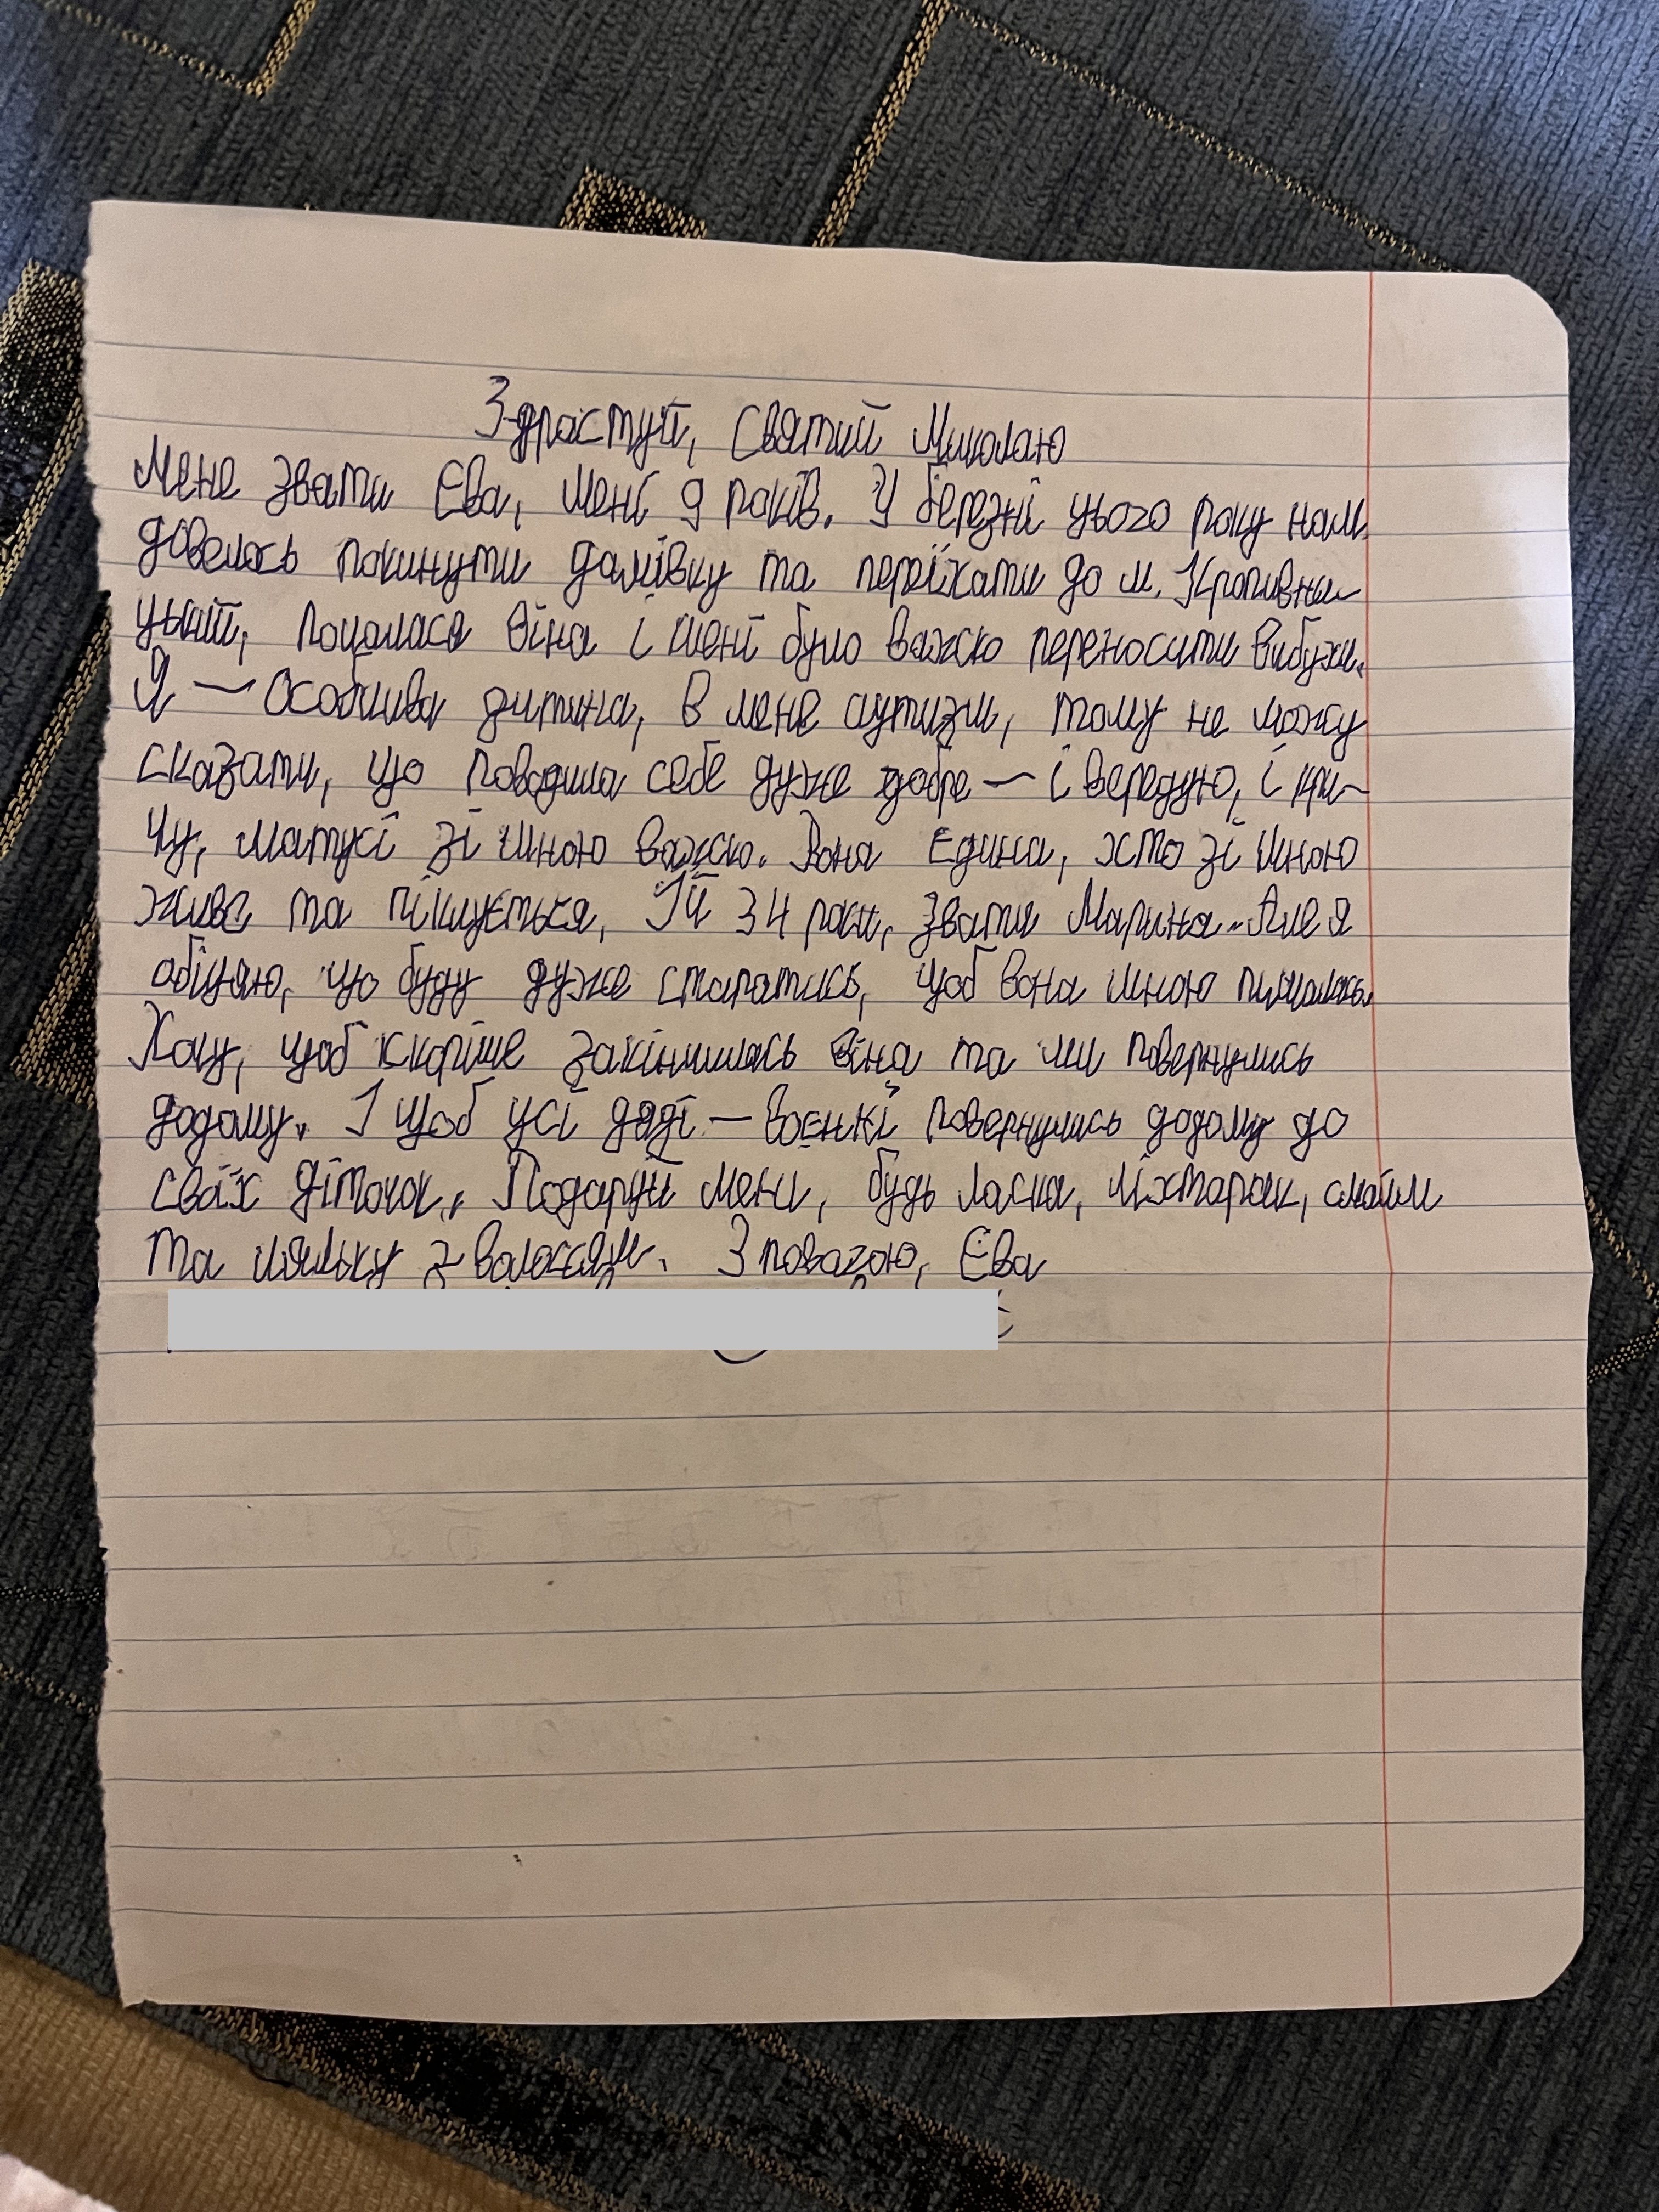 Здрастуй, Святий Миколаю
Мене звати Єва, мені 9 років. У березні цього року нам
довелось покинути домівку та переїхати до м. Кропивни-
цький, почалася віна і мені було важко переносити вибухи.
Я — особлива дитина, в мене аутизм, тому не можу
сказати, що поводила себе дуже добре — і вередую, і кри-
чу, матусі зі мною важко. Вона єдина, хто зі мною
живе та пікується, Їй 34 роки, звати Марина. Але я
обіцяю, що буду дуже старатись, щоб вона мною пишалась.
Хочу, щоб скоріше закінчилась віна та ми повернулись
додому. І щоб усі дяді — воєнкі повернулись додому до
своїх діточок. Подаруй мені, будь ласка, ліхтарик, слайм
та ляльку з волоссям. З повагою, Єва